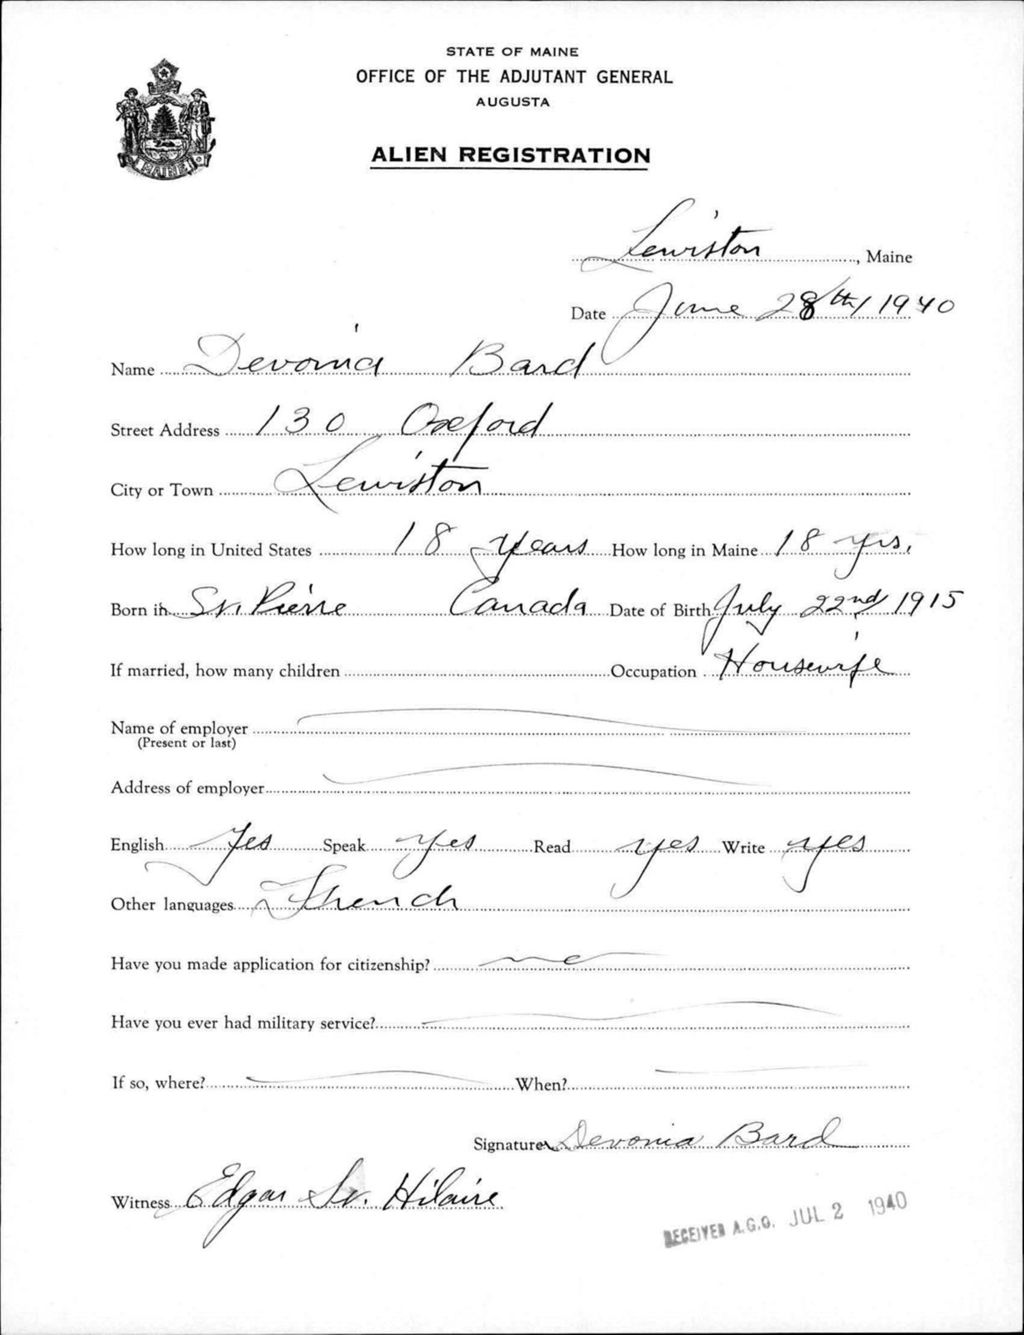 STATE OF MAINE
OFFICE OF THE ADJUTANT GENERAL
AUGUSTA
ALIEN REGISTRATION
MAINE
Lewiston, Maine
Date June 28th/1940
Name Devonia Bard
Street Address 130 Oxford
City or Town Lewiston
How long in United States 18 Years How long in Maine 18 yrs.
Born in St. Pierre Canada Date of Birth July 22nd/1915
If married, how many children Occupation Housewife
Name of employer
(Present or last)
Address of employer
English Yes Speak Yes Read yes Write yes
Other languages French
Have you made application for citizenship? no
Have you ever had military service?
If so, where? When?
Signature Devonia Bard
Witness Edgar St. Hilaire
RECEIVED A.G.O. JUL 2 1940